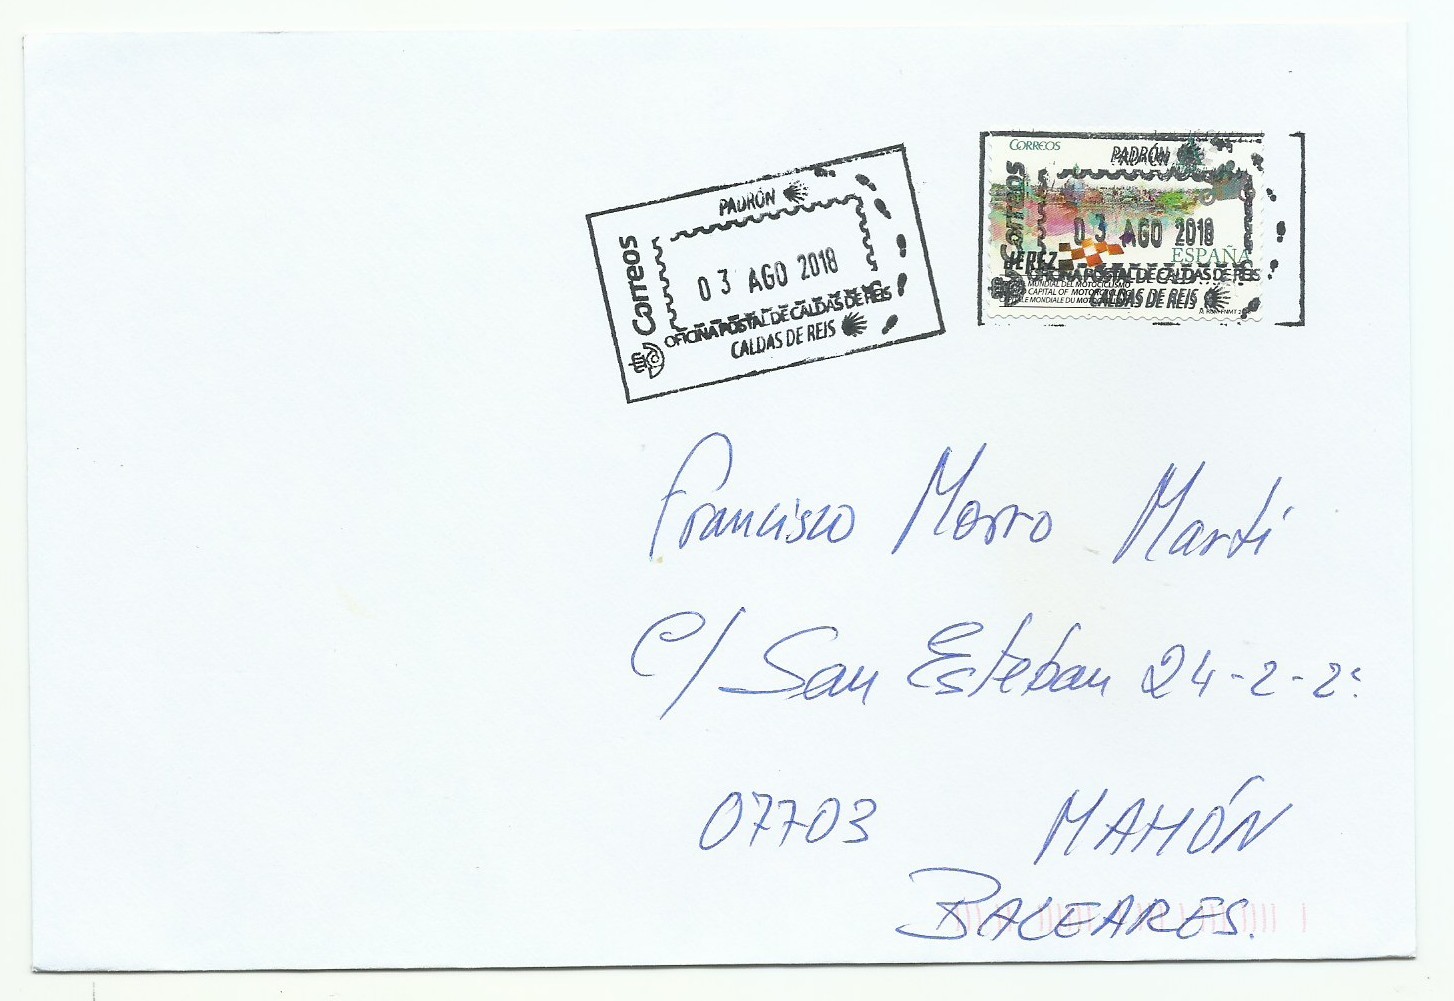 PADRÓN
Correos
03 AGO 2018
OFICINA POSTAL DE CALDAS DE REIS
CALDAS DE REIS
CORREOS
PADRÓN
Correos
03 AGO 2018
ESPAÑA
JEREZ
OFICINA POSTAL DE CALDAS DE REIS
MUNDIAL DEL MOTOCICLISMO
CAPITAL OF MOTORCYCLING
CALDAS DE REIS
MONDIALE DU
Francisco Morro Martí
C/ San Esteban 24-2-2º
07703 MAHÓN
BALEARES.